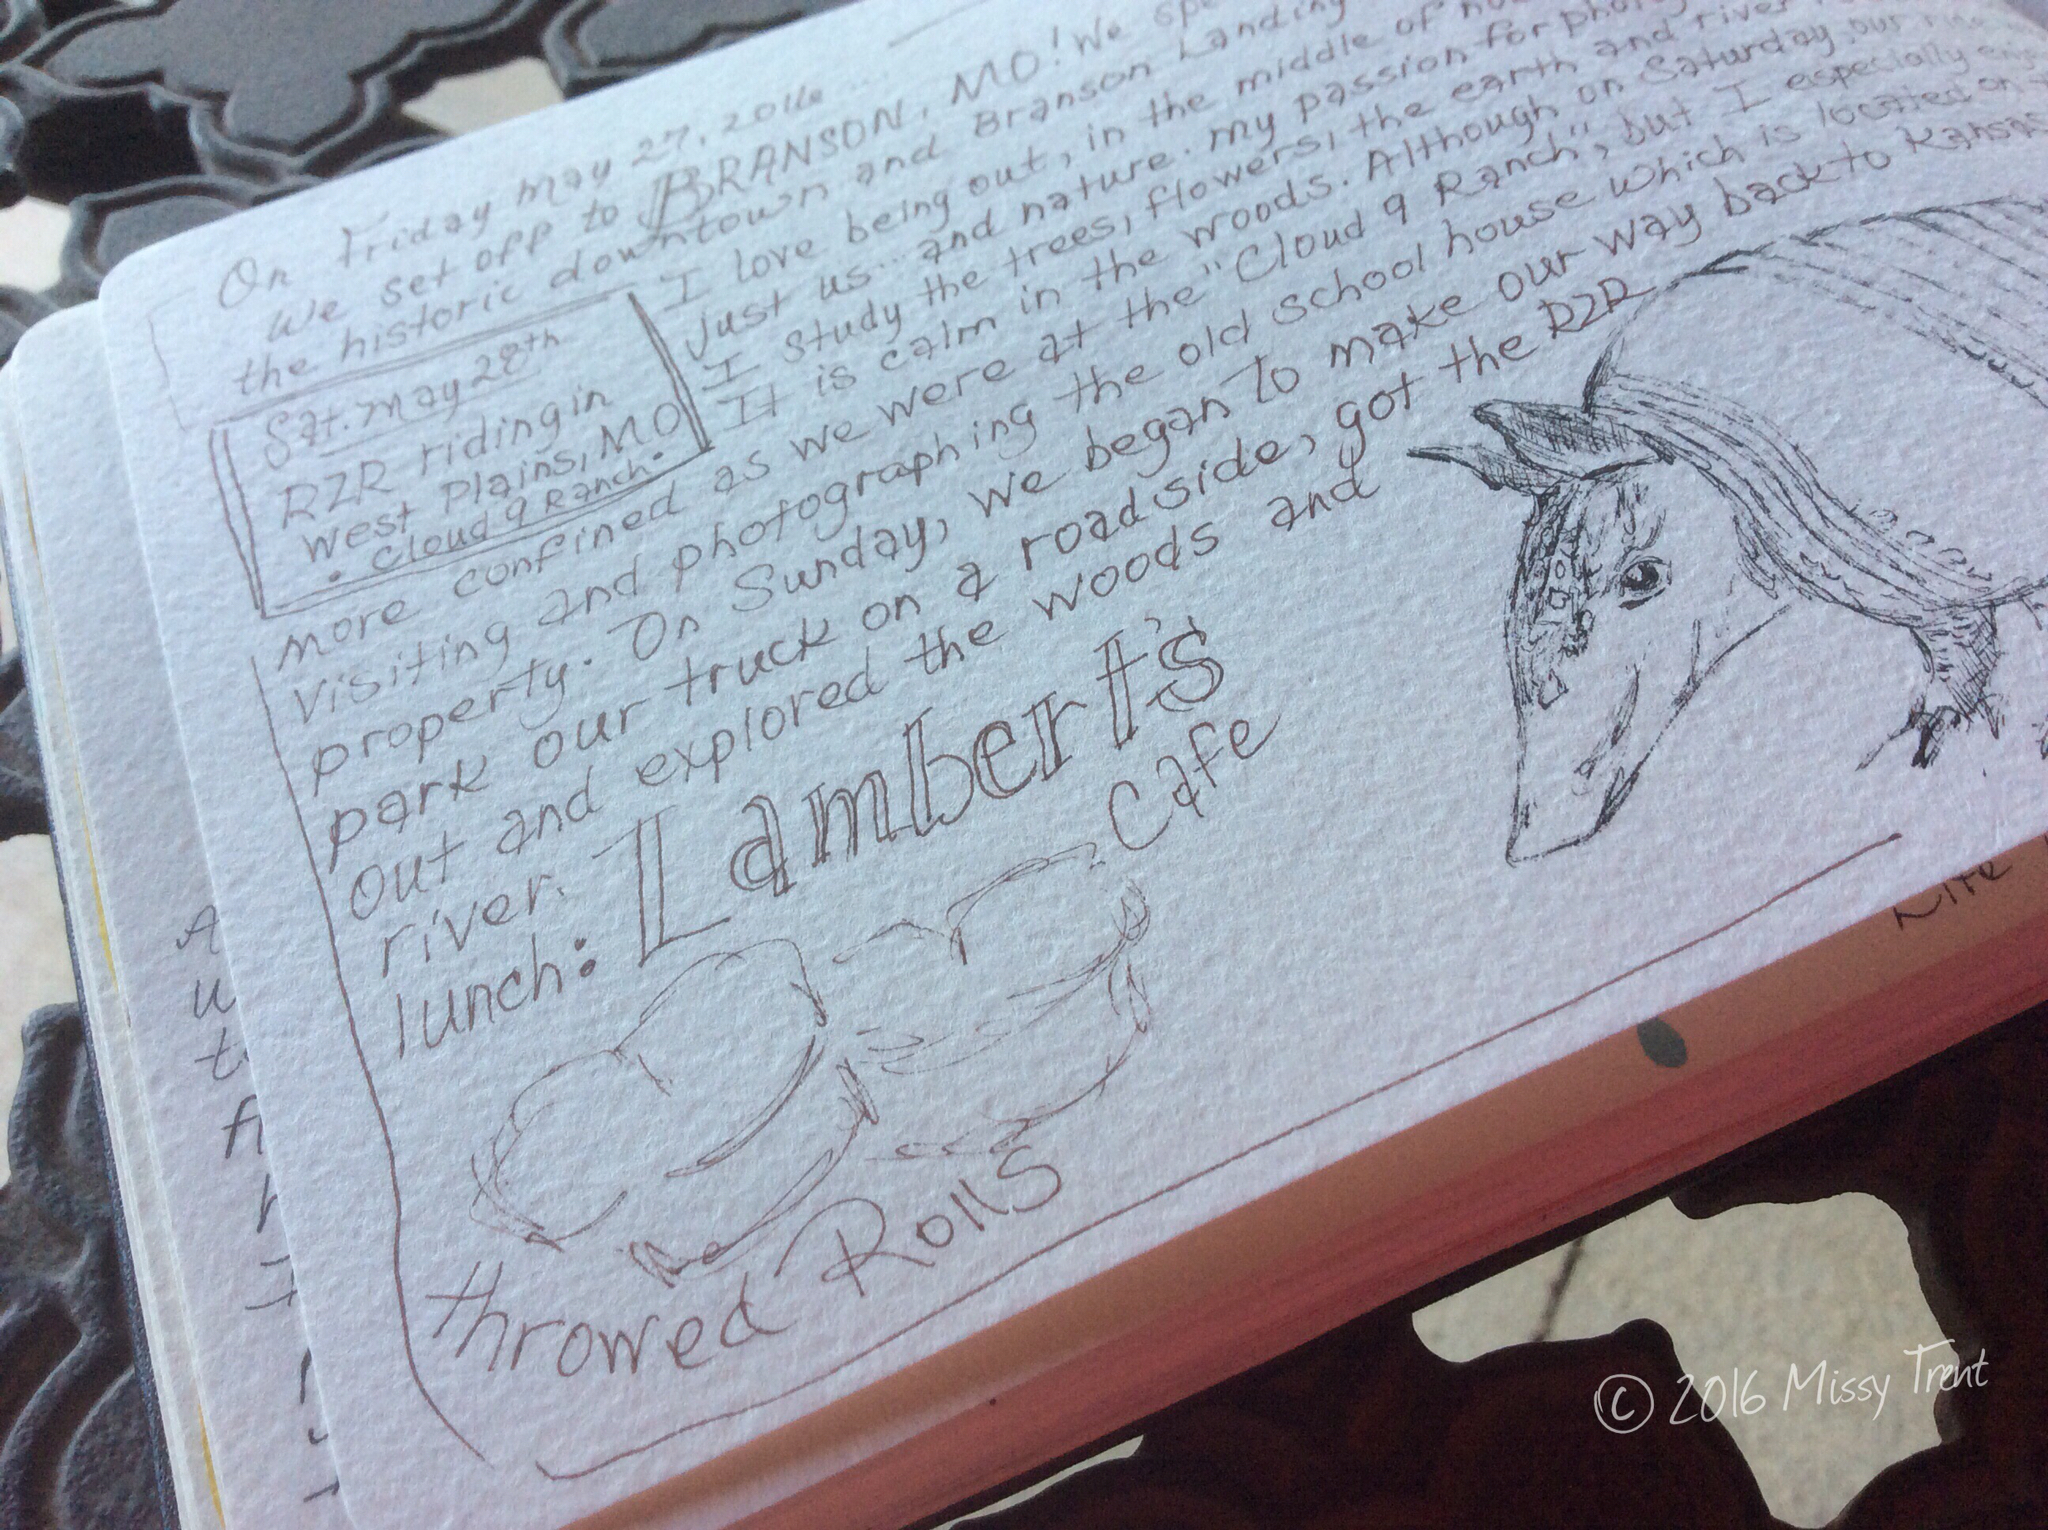 On Friday May 27, 2016 ...
We set off to BRANSON, MO! We spe
the historic downtown and Branson Landing
I love being out, in the middle of
just us... and nature. My passion for
I study the trees, flowers, the earth and river
It is calm in the woods. Although on Saturday, our
Sat. May 28th
RZR riding in
West Plains, MO
• Cloud 9 Ranch •
more confined as we were at the "Cloud 9 Ranch", but I especially
visiting and photographing the old school house which is located on
property. On Sunday, we began to make our way back to Kansas
park our truck on a roadside, got the RZR
out and explored the woods and
river.
lunch: Lambert's
Cafe
throwed Rolls
Life
© 2016 Missy Trent